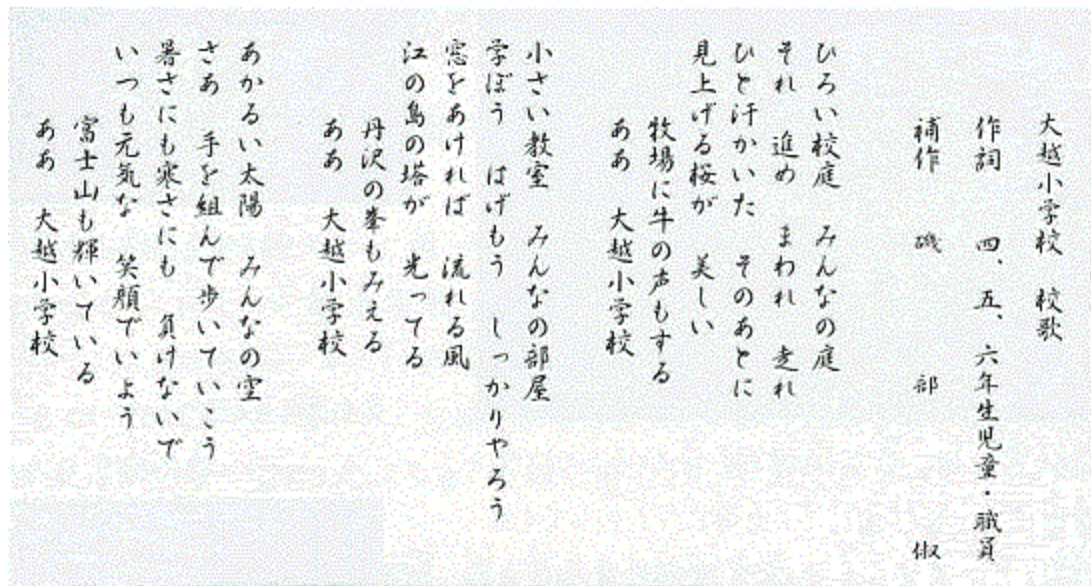 大越小学校 校歌
作詞 四、五、六年生児童・職員
補作 磯部 俶
ひろい校庭 みんなの庭
それ 進め まわれ 走れ
ひと汗かいた そのあとに
見上げる桜が 美しい
牧場に牛の声もする
ああ 大越小学校
小さい教室 みんなの部屋
学ぼう はげもう しっかりやろう
窓をあければ 流れる風
江の島の塔が 光ってる
丹沢の峯もみえる
ああ 大越小学校
あかるい太陽 みんなの空
さあ 手を組んで歩いていこう
暑さにも寒さにも 負けないで
いつも元気な 笑顔でいよう
富士山も輝いている
ああ 大越小学校